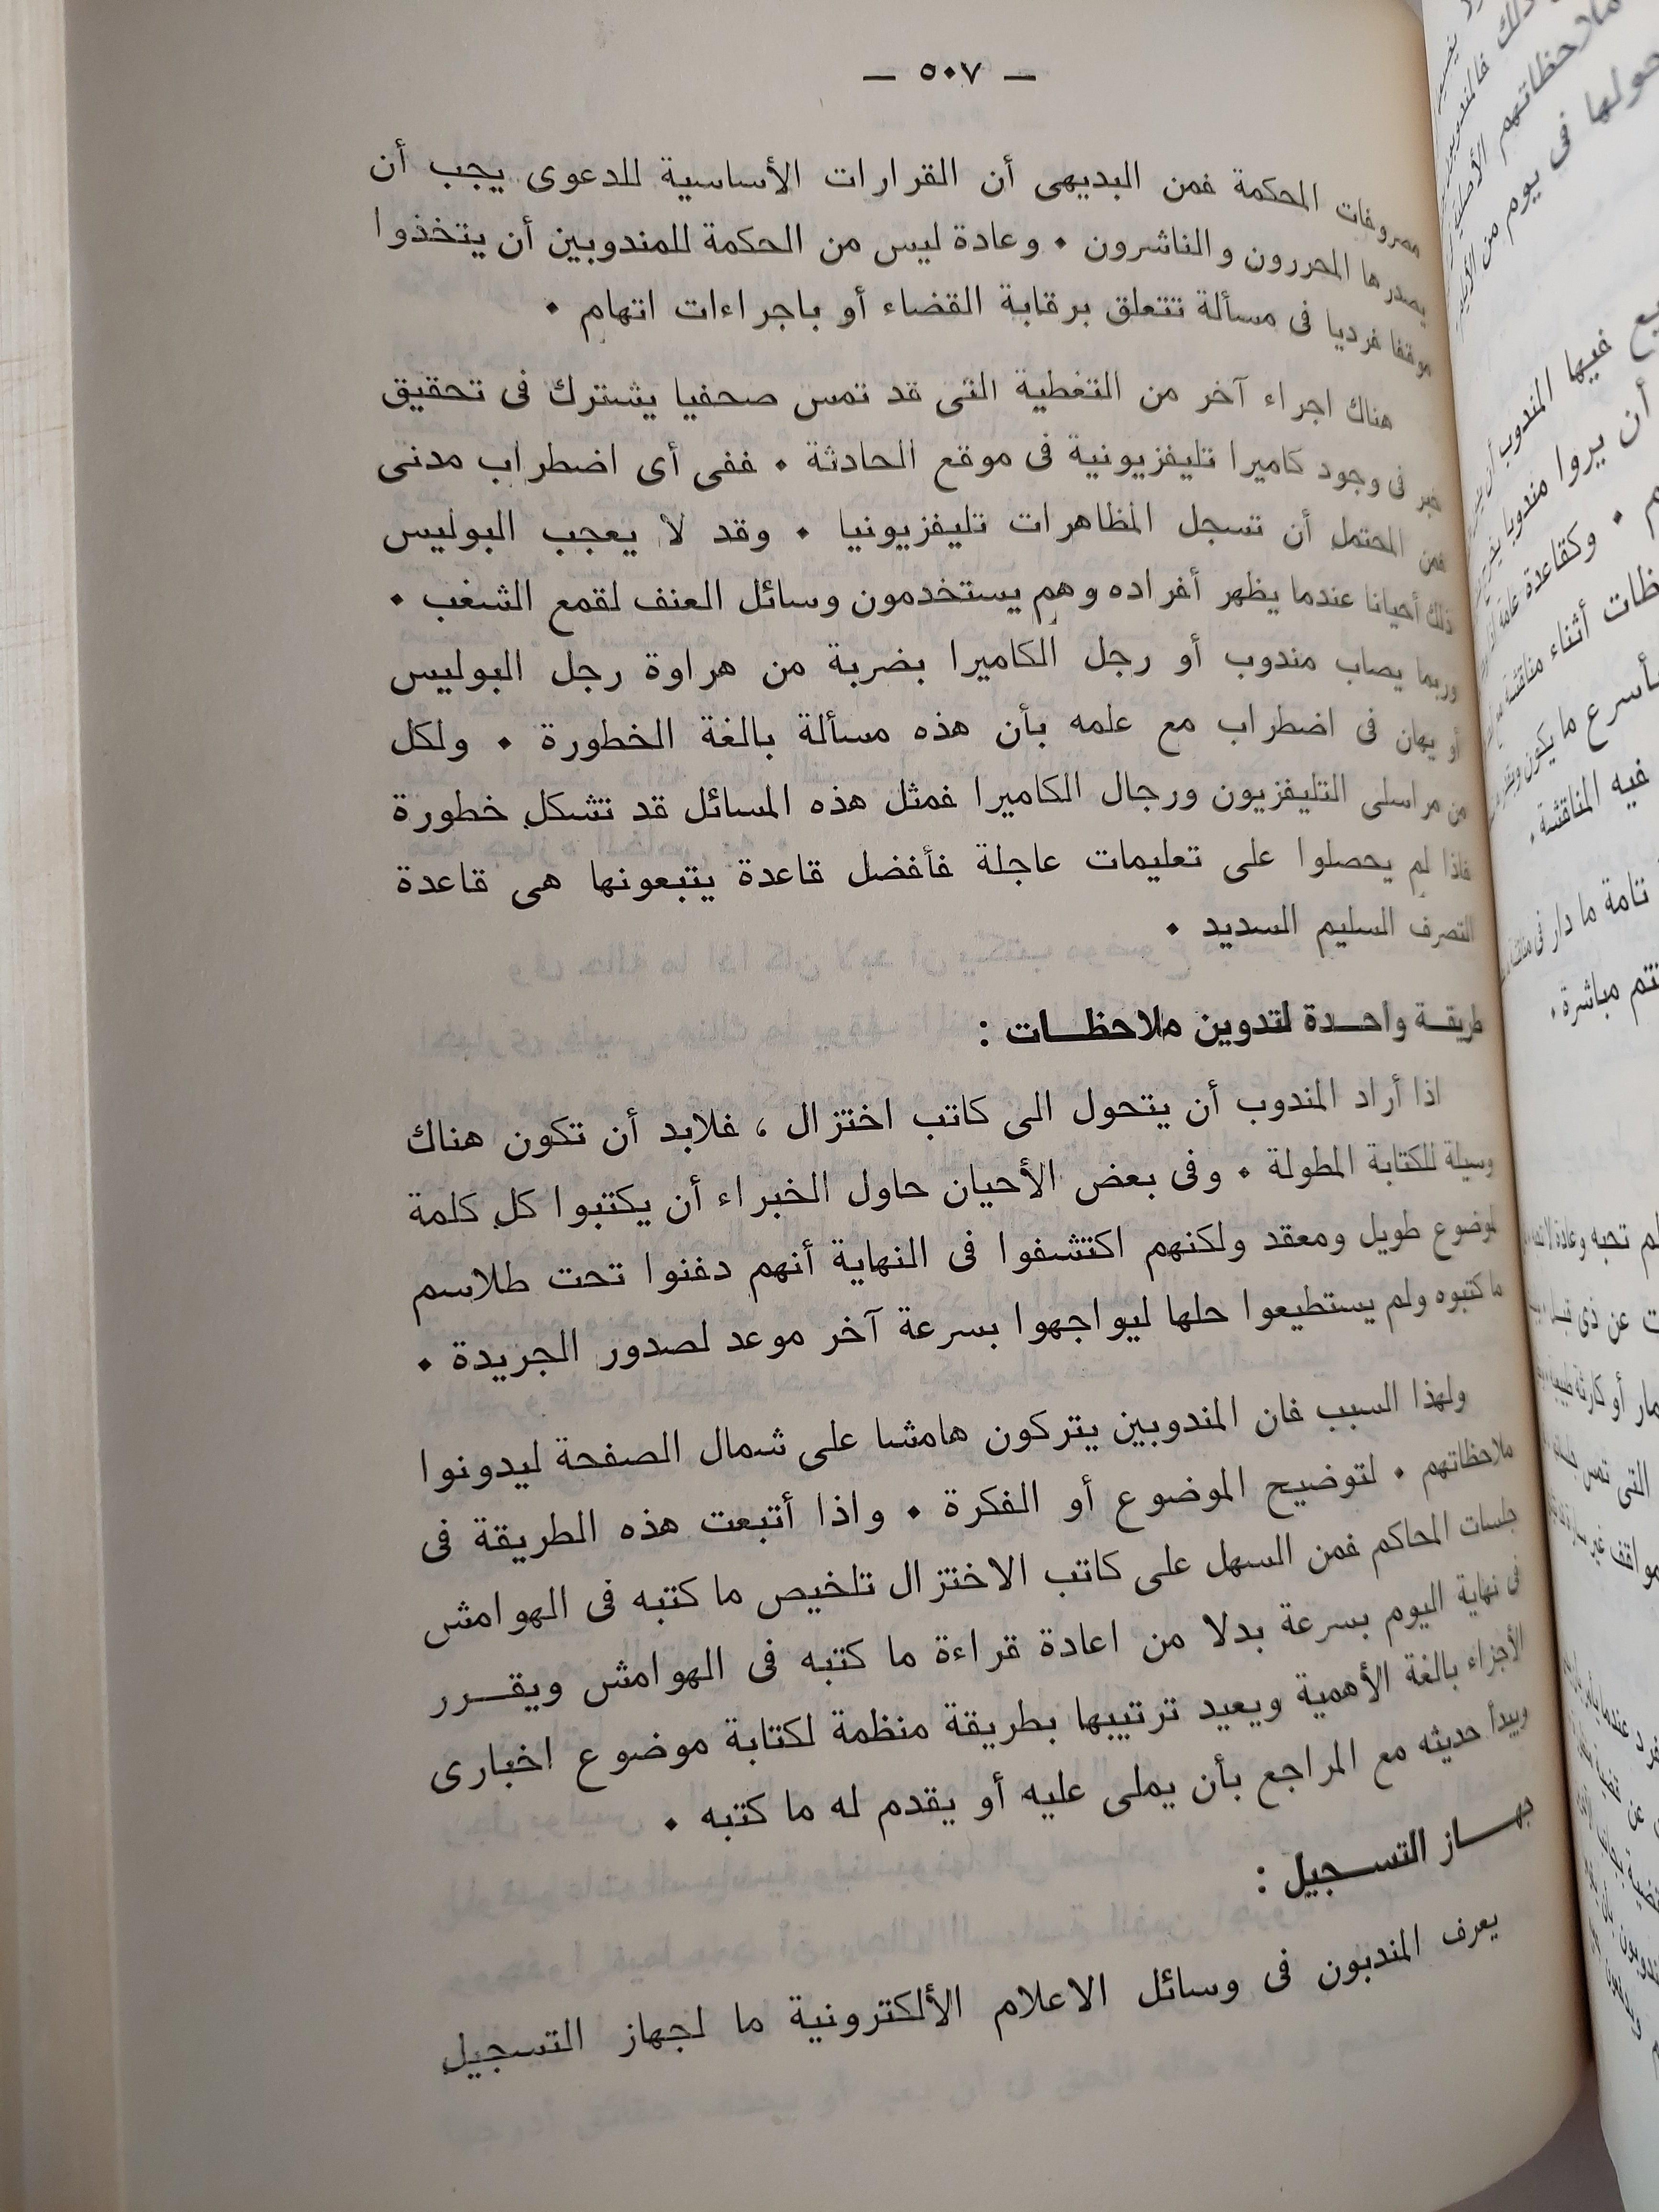 — ٥٠٧ —
مصروفات المحكمة فمن البديهى أن القرارات الأساسية للدعوى يجب أن
يصدرها المحررون والناشرون • وعادة ليس من الحكمة للمندوبين أن يتخذوا
موقفا فرديا فى مسألة تتعلق برقابة القضاء أو باجراءات اتهام •
هناك اجراء آخر من التغطية التى قد تمس صحفيا يشترك فى تحقيق
خبر فى وجود كاميرا تليفزيونية فى موقع الحادثة • ففى أى اضطراب مدنى
فمن المحتمل أن تسجل المظاهرات تليفزيونيا • وقد لا يعجب البوليس
ذلك أحيانا عندما يظهر أفراده وهم يستخدمون وسائل العنف لقمع الشغب •
وربما يصاب مندوب أو رجل الكاميرا بضربة من هراوة رجل البوليس
أو يهان فى اضطراب مع علمه بأن هذه مسألة بالغة الخطورة • ولكل
من مراسلى التليفزيون ورجال الكاميرا فمثل هذه المسائل قد تشكل خطورة
فاذا لم يحصلوا على تعليمات عاجلة فأفضل قاعدة يتبعونها هى قاعدة
التصرف السليم السديد •
طريقــة واحــدة لتدوين ملاحظــات :
اذا أراد المندوب أن يتحول الى كاتب اختزال ، فلابد أن تكون هناك
وسيلة للكتابة المطولة • وفى بعض الأحيان حاول الخبراء أن يكتبوا كل كلمة
لموضوع طويل ومعقد ولكنهم اكتشفوا فى النهاية أنهم دفنوا تحت طلاسم
ما كتبوه ولم يستطيعوا حلها ليواجهوا بسرعة آخر موعد لصدور الجريدة •
ولهذا السبب فان المندوبين يتركون هامشا على شمال الصفحة ليدونوا
ملاحظاتهم • لتوضيح الموضوع أو الفكرة • واذا أتبعت هذه الطريقة فى
جلسات المحاكم فمن السهل على كاتب الاختزال تلخيص ما كتبه فى الهوامش
فى نهاية اليوم بسرعة بدلا من اعادة قراءة ما كتبه فى الهوامش ويقــرر
الأجزاء بالغة الأهمية ويعيد ترتيبها بطريقة منظمة لكتابة موضوع اخبارى
ويبدأ حديثه مع المراجع بأن يملى عليه أو يقدم له ما كتبه •
جهــاز التســجيل :
يعرف المندبون فى وسائل الاعلام الألكترونية ما لجهاز التسجيل